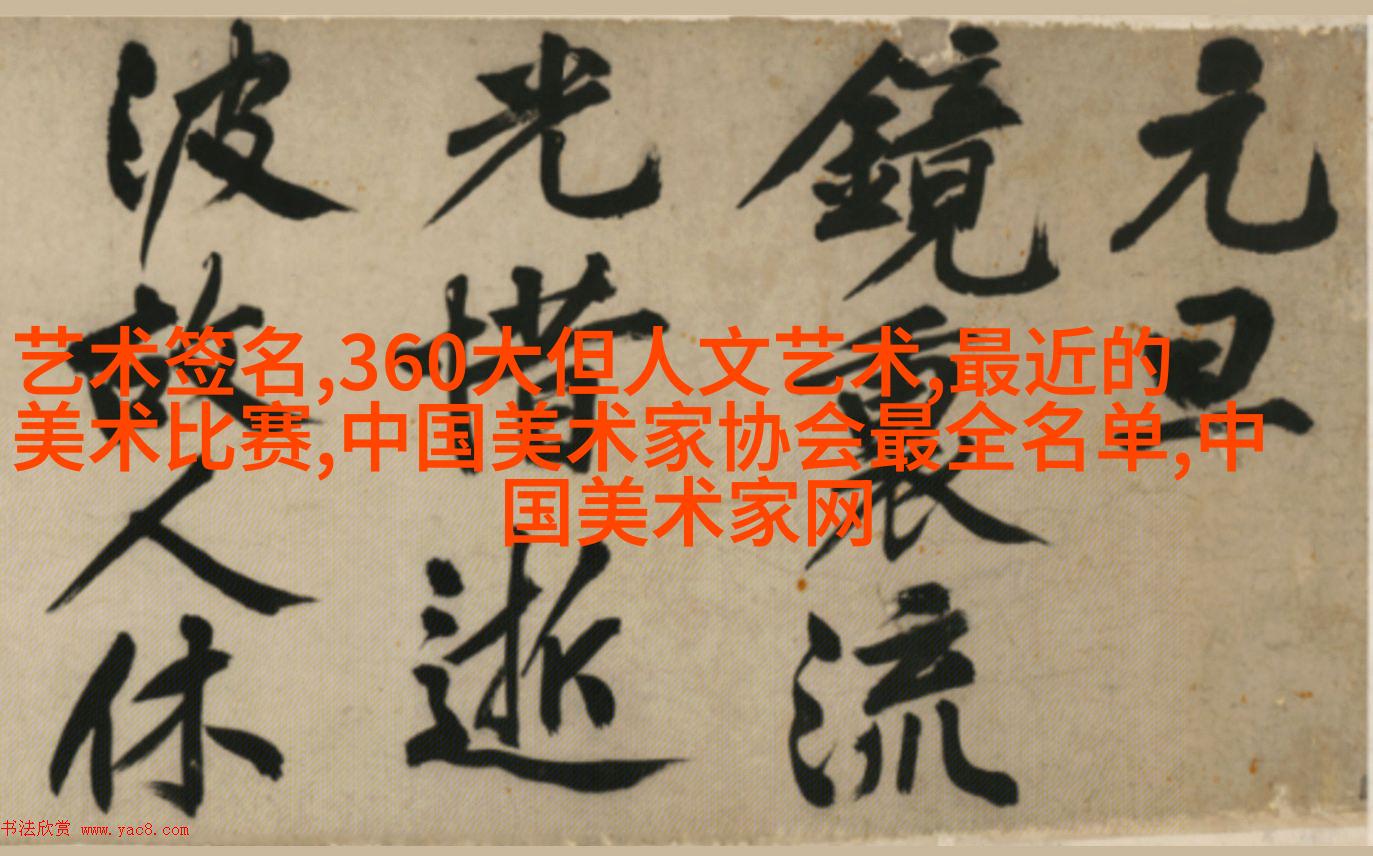 元旦
鏡裏流
光惜逝
波故人休
艺术签名,360大但人文艺术,最近的
美术比赛,中国美术家协会最全名单,中
国美术家网
书法欣赏 www.yac8.com